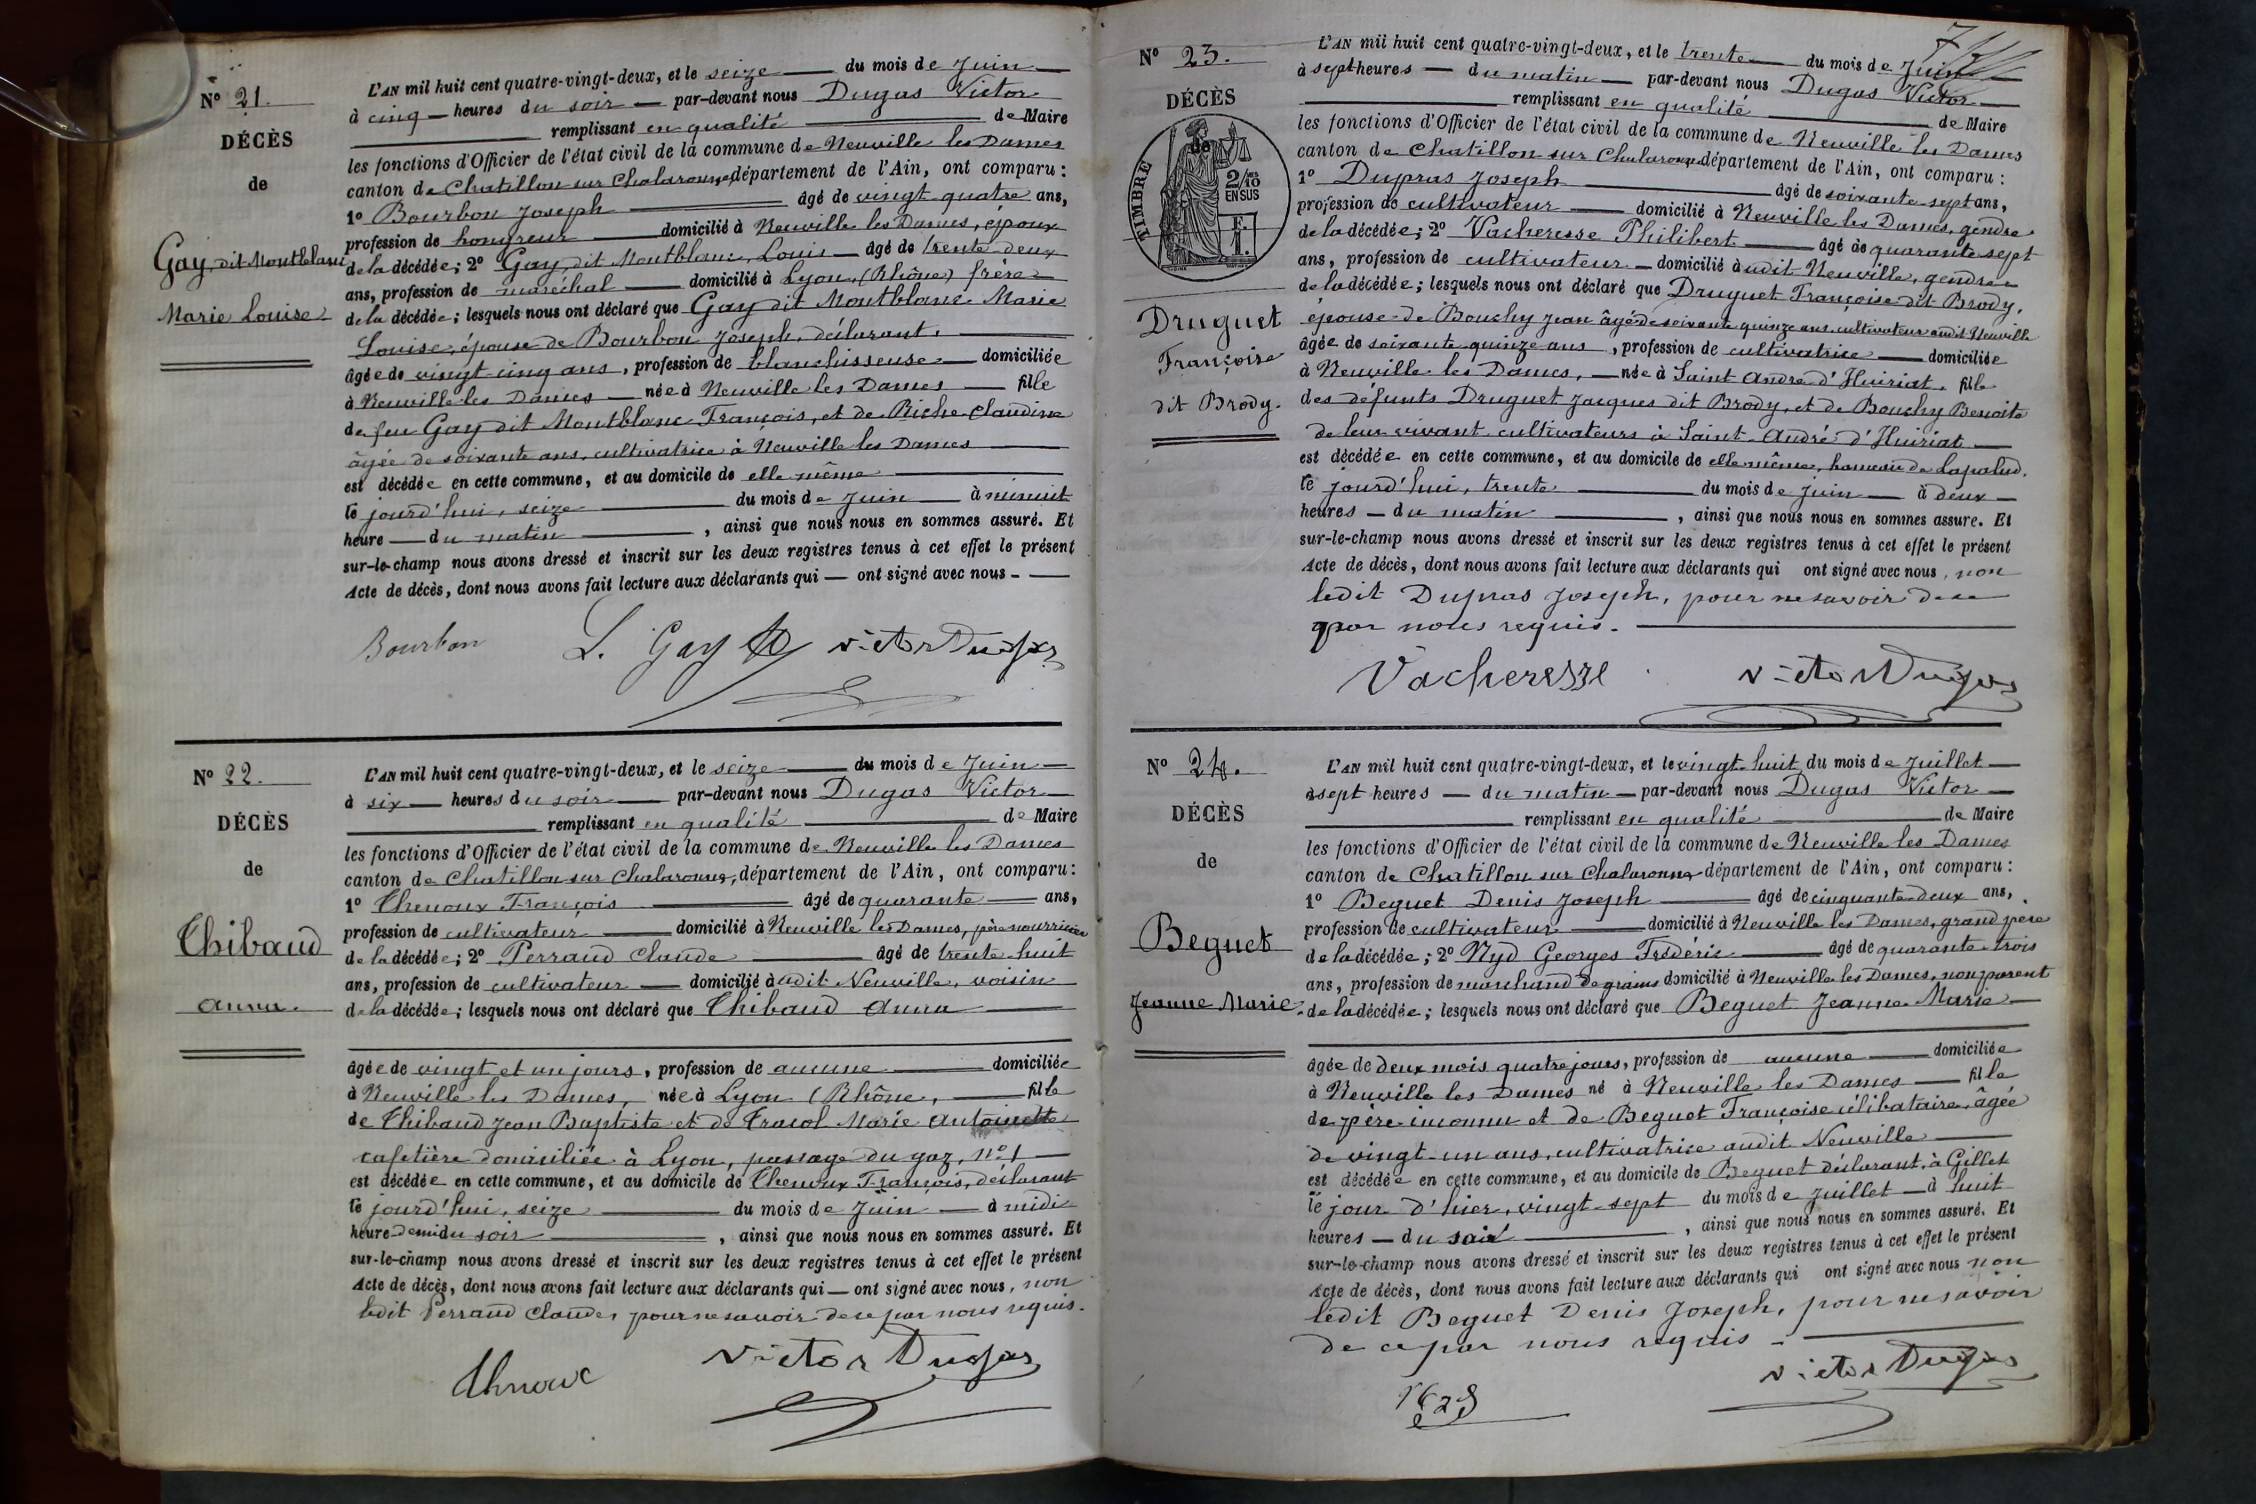 N° 21.
DÉCÈS
de
Gay dit Montblanc
Marie Louise
L'AN mil huit cent quatre-vingt-deux, et le seize du mois de Juin
à cinq heures du soir par-devant nous Dugas Victor
remplissant en qualité de Maire
les fonctions d'Officier de l'état civil de la commune de Neuville les Dames
canton de Chatillon sur Chalaronne, département de l'Ain, ont comparu :
1° Bourbon Joseph âgé de vingt quatre ans,
profession de hongreur domicilié à Neuville les Dames, époux
de la décédée; 2° Gay dit Montblanc, Louis âgé de trente deux
ans, profession de maréchal domicilié à Lyon, (Rhône) frère
de la décédée; lesquels nous ont déclaré que Gay dit Montblanc Marie
Louise, épouse de Bourbon Joseph, déclarant,
âgée de vingt cinq ans, profession de blanchisseuse domiciliée
à Neuville les Dames née à Neuville les Dames fille
de feu Gay dit Montblanc François, et de Riche Claudine
âgée de soixante ans, cultivatrice à Neuville les Dames
est décédée en cette commune, et au domicile de elle même
le jourd'hui, seize du mois de Juin à minuit
heure du matin, ainsi que nous nous en sommes assuré. Et
sur-le-champ nous avons dressé et inscrit sur les deux registres tenus à cet effet le présent
Acte de décès, dont nous avons fait lecture aux déclarants qui ont signé avec nous
Bourbon L. Gay Victor Dugas
N° 22.
DÉCÈS
de
Thibaud
Anna.
L'AN mil huit cent quatre-vingt-deux, et le seize du mois de Juin
à six heures du soir par-devant nous Dugas Victor
remplissant en qualité de Maire
les fonctions d'Officier de l'état civil de la commune de Neuville les Dames
canton de Chatillon sur Chalaronne, département de l'Ain, ont comparu :
1° Thenoux François âgé de quarante ans,
profession de cultivateur domicilié à Neuville les Dames, père nourricier
de la décédée; 2° Perraud Claude âgé de trente huit
ans, profession de cultivateur domicilié à udit Neuville, voisin
de la décédée; lesquels nous ont déclaré que Thibaud Anna
âgée de vingt et un jours, profession de aucune domiciliée
à Neuville les Dames, née à Lyon (Rhône, fille
de Thibaud Jean Baptiste et de Tracol Marie Antoinette
cafetière domiciliée à Lyon, passage du gaz, N° 1
est décédée en cette commune, et au domicile de Thenoux François, déclarant
le jourd'hui, seize du mois de Juin à midi
heure demi du soir, ainsi que nous nous en sommes assuré. Et
sur-le-champ nous avons dressé et inscrit sur les deux registres tenus à cet effet le présent
Acte de décès, dont nous avons fait lecture aux déclarants qui ont signé avec nous, non
ledit Perraud Claude, pour ne savoir de ce par nous requis.
Thnoux Victor Dugas
N° 23.
DÉCÈS
de
TIMBRE
2/10
EN SUS
Druguet
Françoise
dit Brody.
L'AN mil huit cent quatre-vingt-deux, et le trente du mois de Juin
à sept heures du matin par-devant nous Dugas Victor
remplissant en qualité de Maire
les fonctions d'Officier de l'état civil de la commune de Neuville les Dames
canton de Chatillon sur Chalaronne département de l'Ain, ont comparu :
1° Dupras Joseph âgé de soixante sept ans,
profession de cultivateur domicilié à Neuville les Dames, gendre
de la décédée; 2° Vacheresse Philibert âgé de quarante sept
ans, profession de cultivateur domicilié à udit Neuville, gendre
de la décédée; lesquels nous ont déclaré que Druguet Françoise dit Brody,
épouse de Bouchy Jean âgé de soixante quinze ans cultivateur audit Neuville
âgée de soixante quinze ans, profession de cultivatrice domiciliée
à Neuville les Dames, née à Saint André d'Huiriat, fille
des défunts Druguet Jacques dit Brody, et de Bouchy Benoite
de leur vivant cultivateurs à Saint André d'Huiriat
est décédée en cette commune, et au domicile de elle même, hameau de Lapalud.
le jourd'hui, trente du mois de Juin à deux
heures du matin, ainsi que nous nous en sommes assuré. Et
sur-le-champ nous avons dressé et inscrit sur les deux registres tenus à cet effet le présent
Acte de décès, dont nous avons fait lecture aux déclarants qui ont signé avec nous, non
ledit Dupras Joseph, pour ne savoir de ce
par nous requis.
Vacheresse Victor Dugas
N° 24.
DÉCÈS
de
Beguet
Jeanne Marie.
L'AN mil huit cent quatre-vingt-deux, et le vingt-huit du mois de Juillet
à sept heures du matin par-devant nous Dugas Victor
remplissant en qualité de Maire
les fonctions d'Officier de l'état civil de la commune de Neuville les Dames
canton de Chatillon sur Chalaronne département de l'Ain, ont comparu :
1° Beguet Denis Joseph âgé de cinquante deux ans,
profession de cultivateur domicilié à Neuville les Dames, grand père
de la décédée; 2° Nyd Georges Frédéric âgé de quarante trois
ans, profession de marchand de grains domicilié à Neuville les Dames, non parent
de la décédée; lesquels nous ont déclaré que Beguet Jeanne Marie
âgée de deux mois quatre jours, profession de aucune domiciliée
à Neuville les Dames né à Neuville les Dames fille
de père inconnu et de Beguet Françoise célibataire, âgée
de vingt-un ans, cultivatrice audit Neuville
est décédée en cette commune, et au domicile de Beguet déclarant, à Gillet
le jour d'hier, vingt-sept du mois de Juillet à huit
heures du soir, ainsi que nous nous en sommes assuré. Et
sur-le-champ nous avons dressé et inscrit sur les deux registres tenus à cet effet le présent
Acte de décès, dont nous avons fait lecture aux déclarants qui ont signé avec nous non
ledit Beguet Denis Joseph, pour ne savoir
de ce par nous requis
Victor Dugas